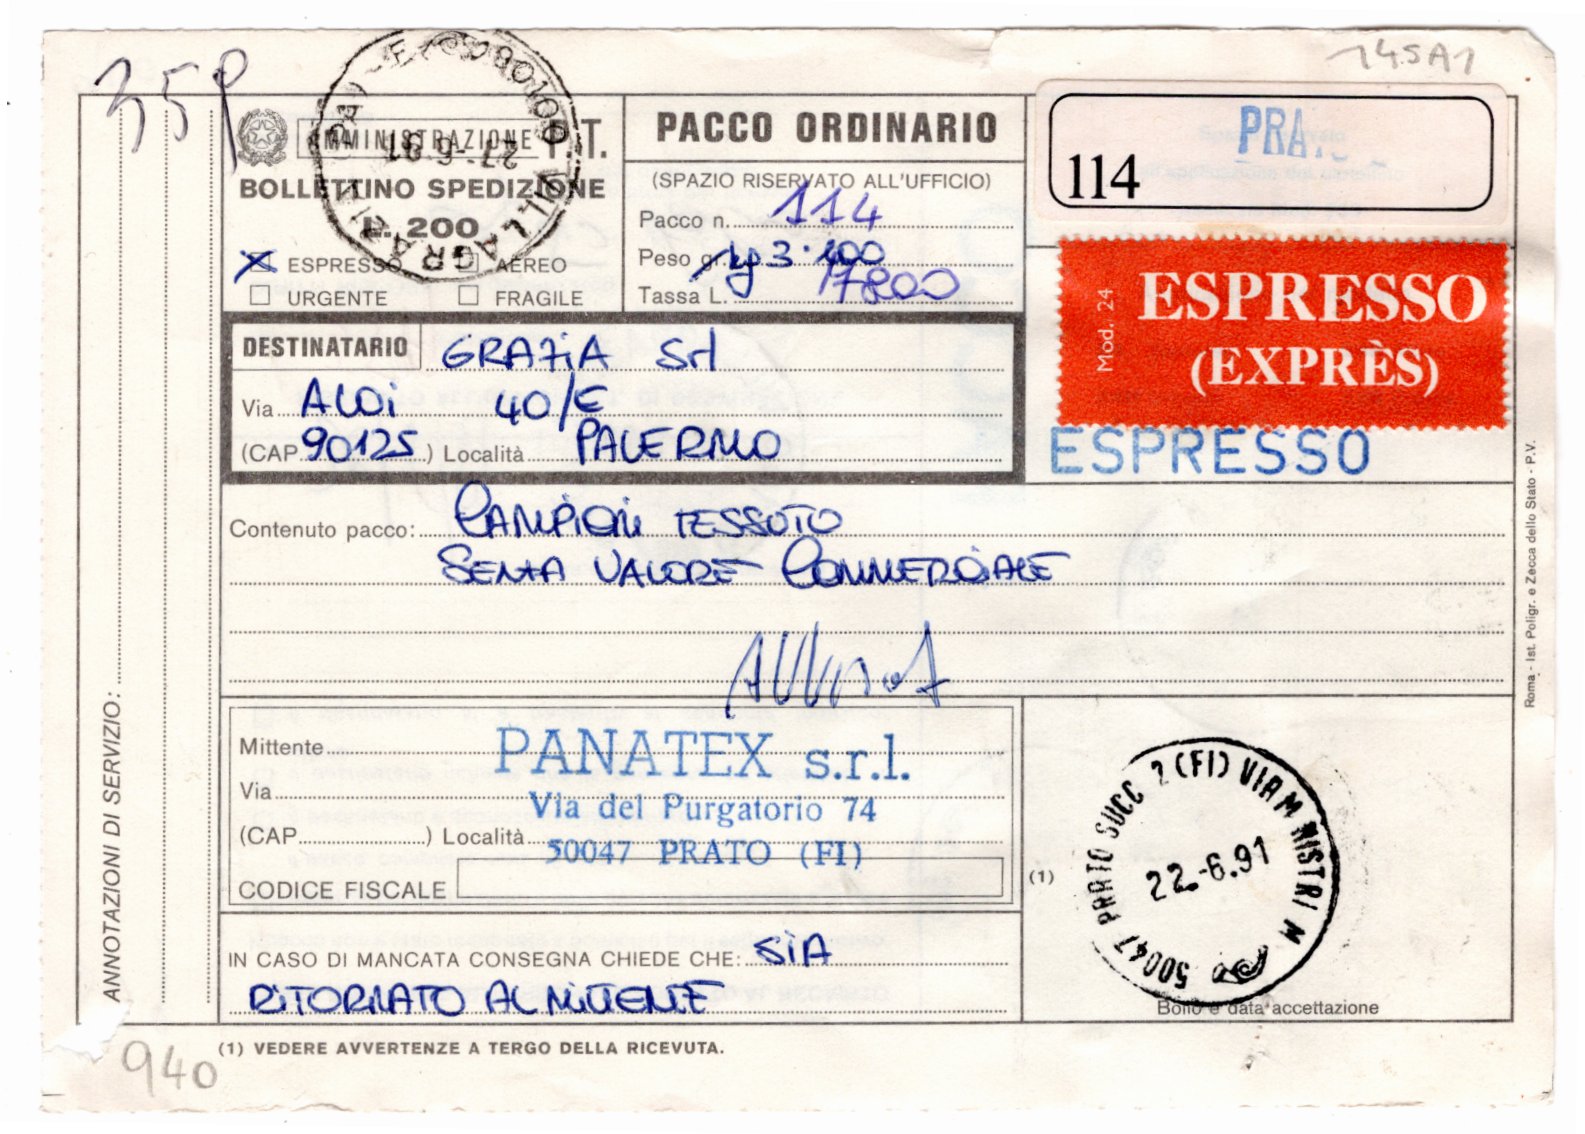 145A1
35P
AMMINISTRAZIONE P.T.
BOLLETTINO SPEDIZIONE
L. 200
ESPRESSO AEREO
URGENTE FRAGILE
27.-6.91
PACCO ORDINARIO
(SPAZIO RISERVATO ALL'UFFICIO)
Pacco n. 114
Peso gr. kg 3.100
Tassa L. 17800
PRA
114
Mod. 24
ESPRESSO
(EXPRÈS)
ESPRESSO
DESTINATARIO GRAZIA Srl
Via ALOI 40/E
(CAP 90125) Località PALERMO
Contenuto pacco: CAMPIONI TESSUTO
SENZA VALORE COMMERCIALE
Mittente PANATEX s.r.l.
Via Via del Purgatorio 74
(CAP ) Località 50047 PRATO (FI)
CODICE FISCALE
(1)
50047 PRATO SUCC 2 (FI) VIA M NISTRI M
22.-6.91
Bollo e data accettazione
IN CASO DI MANCATA CONSEGNA CHIEDE CHE: SIA
RITORNATO AL MITTENTE
(1) VEDERE AVVERTENZE A TERGO DELLA RICEVUTA.
ANNOTAZIONI DI SERVIZIO:
Roma - Ist. Poligr. e Zecca dello Stato - P.V.
940